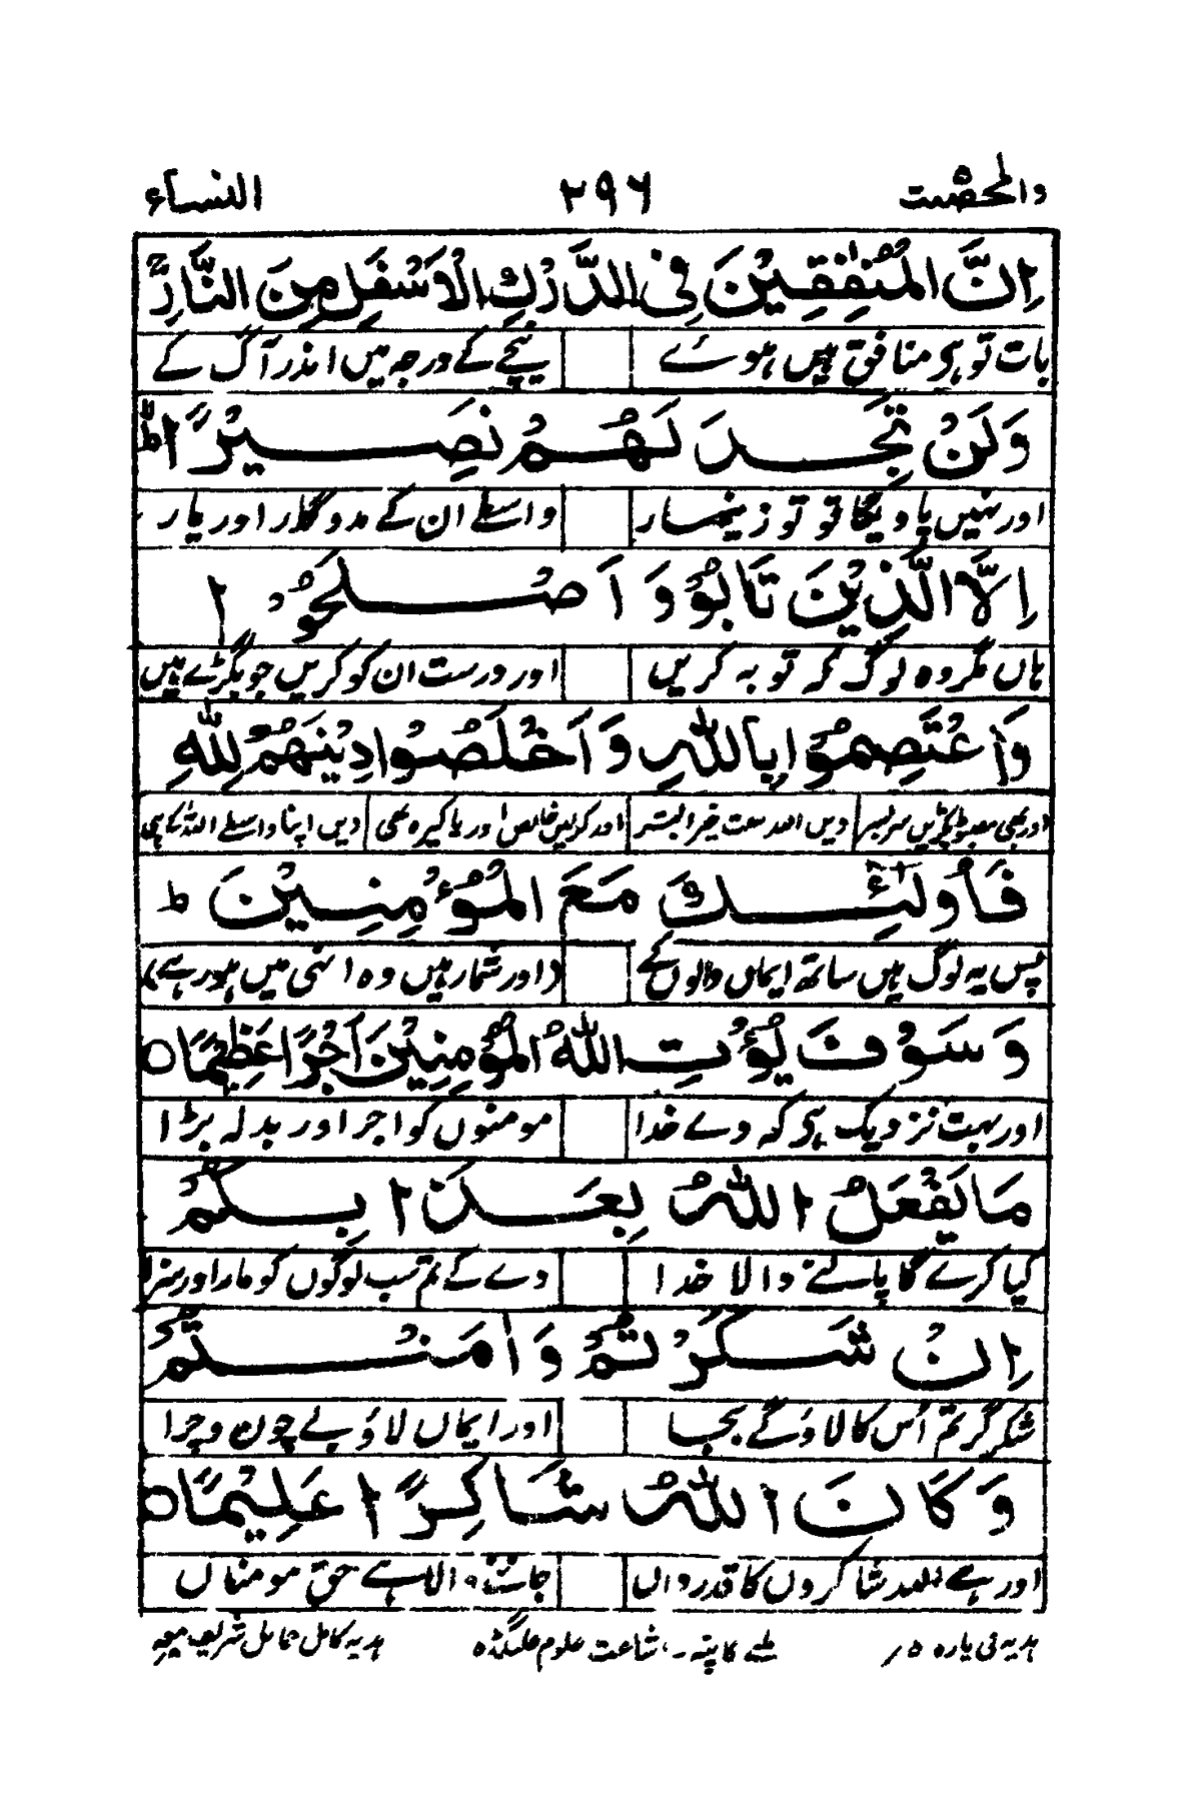 والمحصنت ۵ ۲۹۶ النساء۴
اِنَّ الْمُنٰفِقِيْنَ فِى الدَّرْكِ الْاَسْفَلِ مِنَ النَّارِ ۚ
بات تو ہی منافق ہیں ہوئے نیچے کے درجہ میں اندر آگ کے
وَلَنْ تَجِدَ لَهُمْ نَصِيْرًا ۙ
اور نہیں پاویگا تو تو زینہار واسطے ان کے مددگار اور یار
اِلَّا الَّذِيْنَ تَابُوْ وَ اَصْلَحُوْا
ہاں مگر وہ لوگ کہ توبہ کریں اور درست ان کو کریں جو بگڑے ہیں
وَاعْتَصِمُوْا بِاللّٰهِ وَ اَخْلَصُوْا دِيْنَهُمْ لِلّٰهِ
اور بھی مضبوط پکڑیں سر بسر دیں اور کرلیں خالص اور پاکیزہ بھی دیں اپنا واسطے اللہ کے ہی
فَاُولٰٓئِكَ مَعَ الْمُؤْمِنِيْنَ ط
پس یہ لوگ ہیں ساتھ ایماں والوں کے (اور شمار ہیں وہ انہی میں ہو رہے)
وَ سَوْفَ يُؤْتِ اللّٰهُ الْمُؤْمِنِيْنَ اَجْرًا عَظِيْمًا ○
اور بہت نزدیک ہی کہ دے خدا مومنوں کو اجر اور بدلہ بڑا
مَا يَفْعَلُ اللّٰهُ بِعَذَابِكُمْ
کیا کرے گا پالنے والا خدا دے کے تم سب لوگوں کو مار اور سزا
اِنْ شَكَرْتُمْ وَ اٰمَنْتُمْ
شکر گر تم اُس کا لاؤگے بجا اور ایماں لاؤ بے چون و چرا
وَ كَانَ اللّٰهُ شَاكِرًا عَلِيْمًا ○
اور ہے اللہ شاکروں کا قدرداں جاننے والا ہے حق مومناں
ہدیہ فی پارہ ۵/ ملنے کا پتہ ۔ اشاعت علوم علیگڈہ ہدیہ کامل حمائل شریف